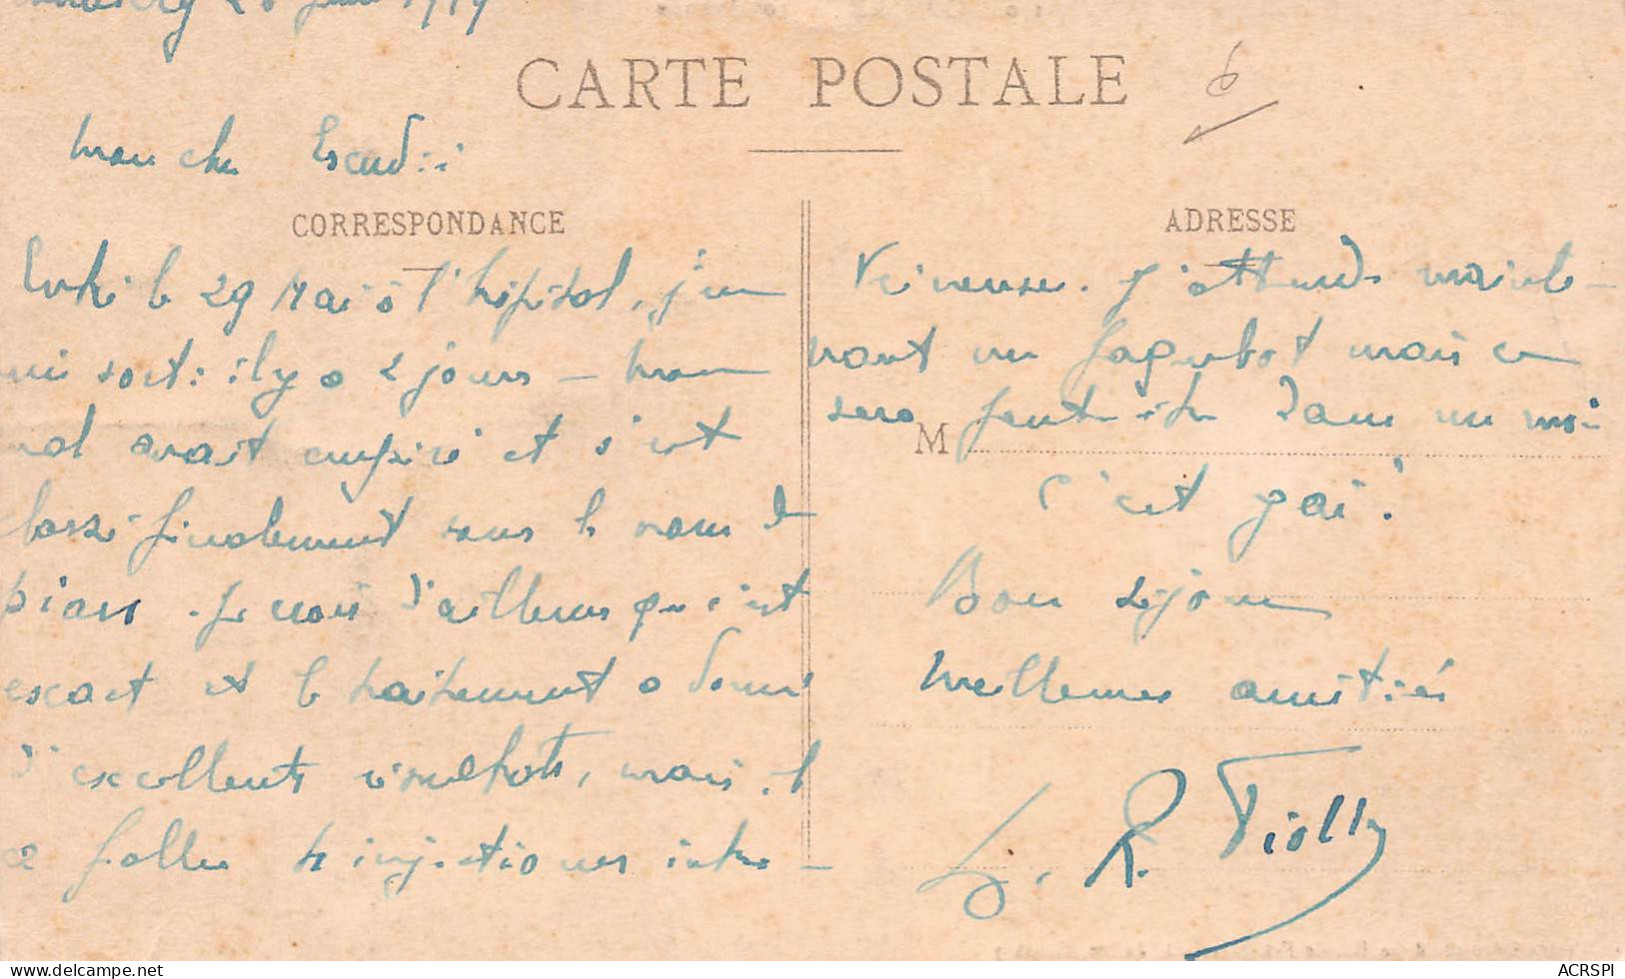 1919
CARTE POSTALE
6
mon cher Escud
CORRESPONDANCE
le 29 Mai à l'hôpital, j'en
suis sorti il y a 2 jours — mon
mal avait empiré et s'est
classé finalement sous le nom de
pians. Je crois d'ailleurs que c'est
exact et le traitement a donné
d'excellents résultats, mais il
a fallu injections intra-
ADRESSE
veineuses. J'attends mainte-
nant un paquebot mais ce
sera peut-être dans un mois
M
C'est gai!
Bon séjour
meilleures amitiés
R. Violly
ACRSPI